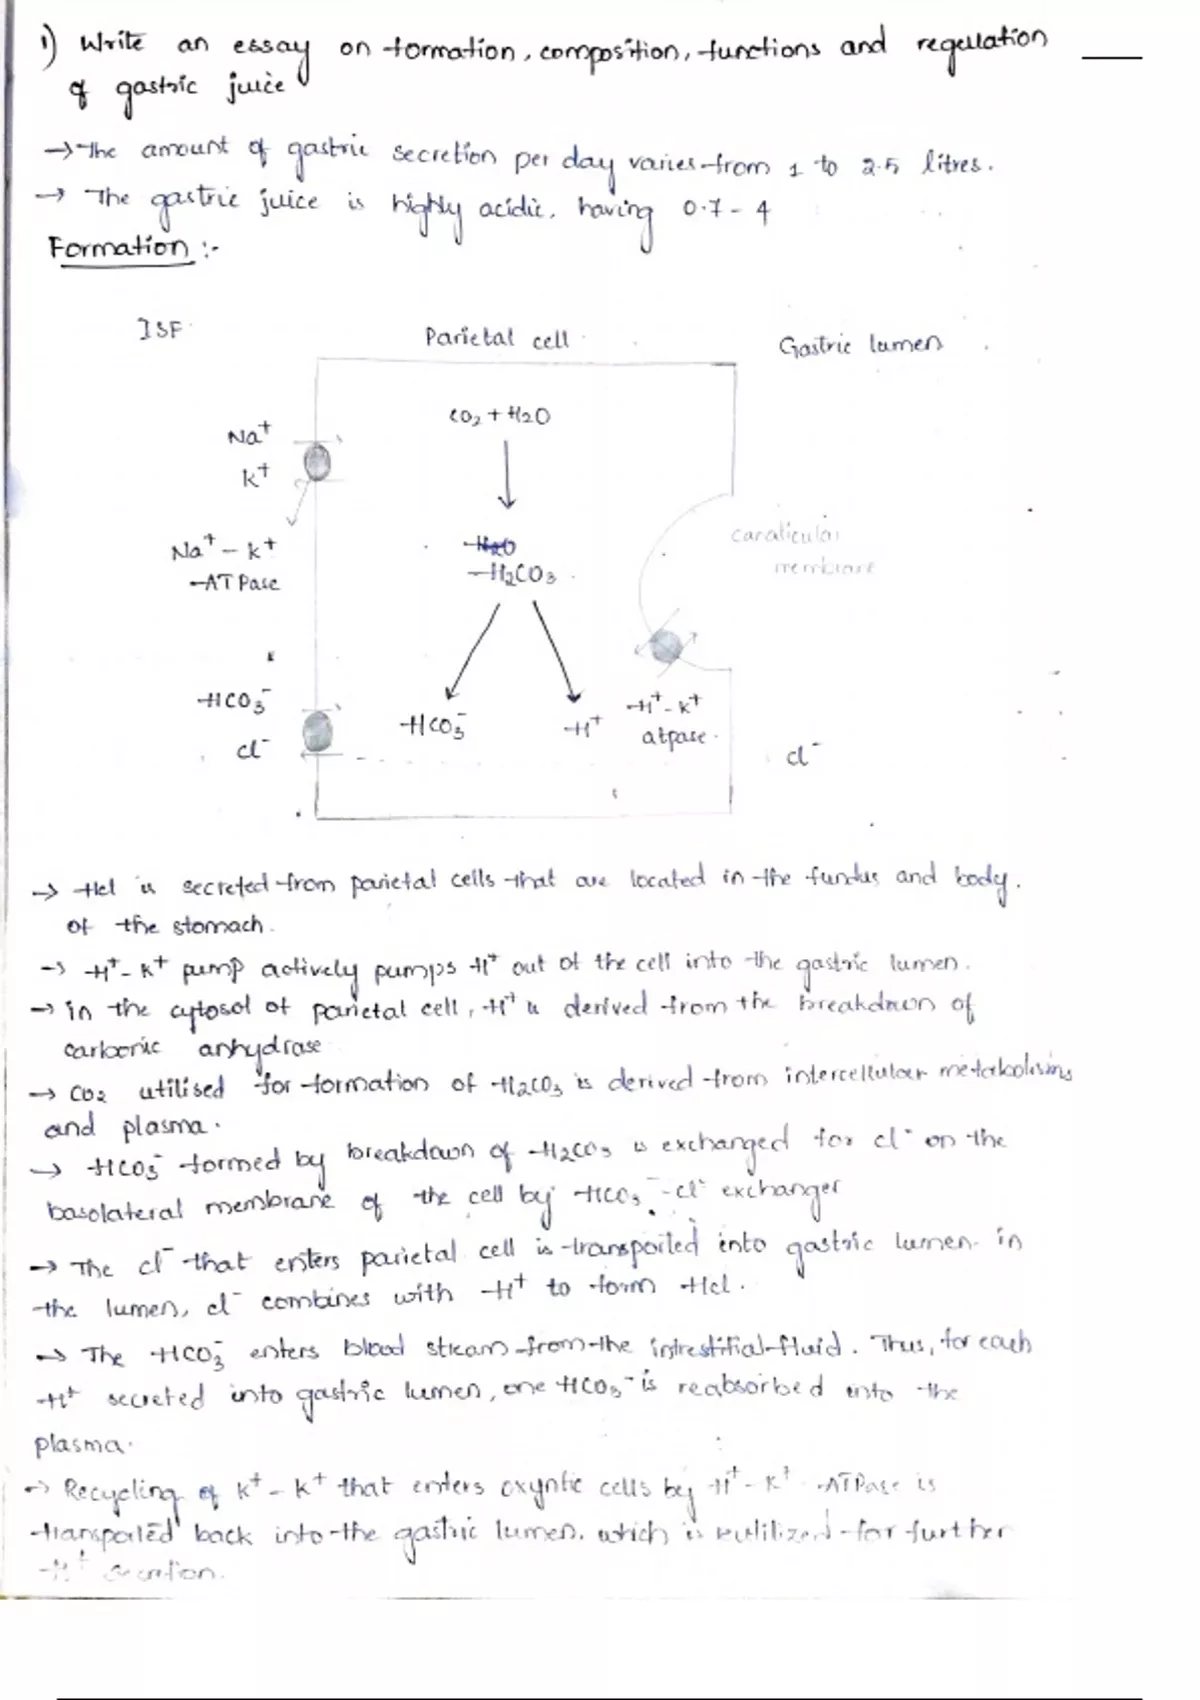 1) Write an essay on formation, composition, functions and regulation
of gastric juice
→ The amount of gastric secretion per day varies from 1 to 2.5 litres.
→ The gastric juice is highly acidic, having 0.7 - 4
Formation :-
ISF
Parietal cell
Gastric lumen
CO2 + H2O
Na+
K+
canaliculai
membrane
Na+ - K+
ATPase
H2CO3
HCO3-
Cl-
HCO3-
H+
H+-K+
atpase.
Cl-
→ Hcl is secreted from parietal cells that are located in the fundus and body.
of the stomach.
→ H+- K+ pump actively pumps H+ out of the cell into the gastric lumen.
→ in the cytosol of parietal cell, H+ is derived from the breakdown of
carbonic anhydrase
→ CO2 utilised for formation of H2CO3 is derived from intercellular metabolisms
and plasma.
→ HCO3- formed by breakdown of H2CO3 is exchanged for cl- on the
basolateral membrane of the cell by HCO3- -cl- exchanger
→ The cl- that enters parietal cell is transported into gastric lumen. in
the lumen, cl- combines with H+ to form Hcl.
→ The HCO3- enters blood stream from the intrestitial fluid. Thus, for each
H+ secreted into gastric lumen, one HCO3- is reabsorbed into the
plasma.
→ Recycling of K+ - K+ that enters oxyntic cells by H+ - K+ -ATPase is
transported back into the gastric lumen. which is reutilized for further
H+ secretion.